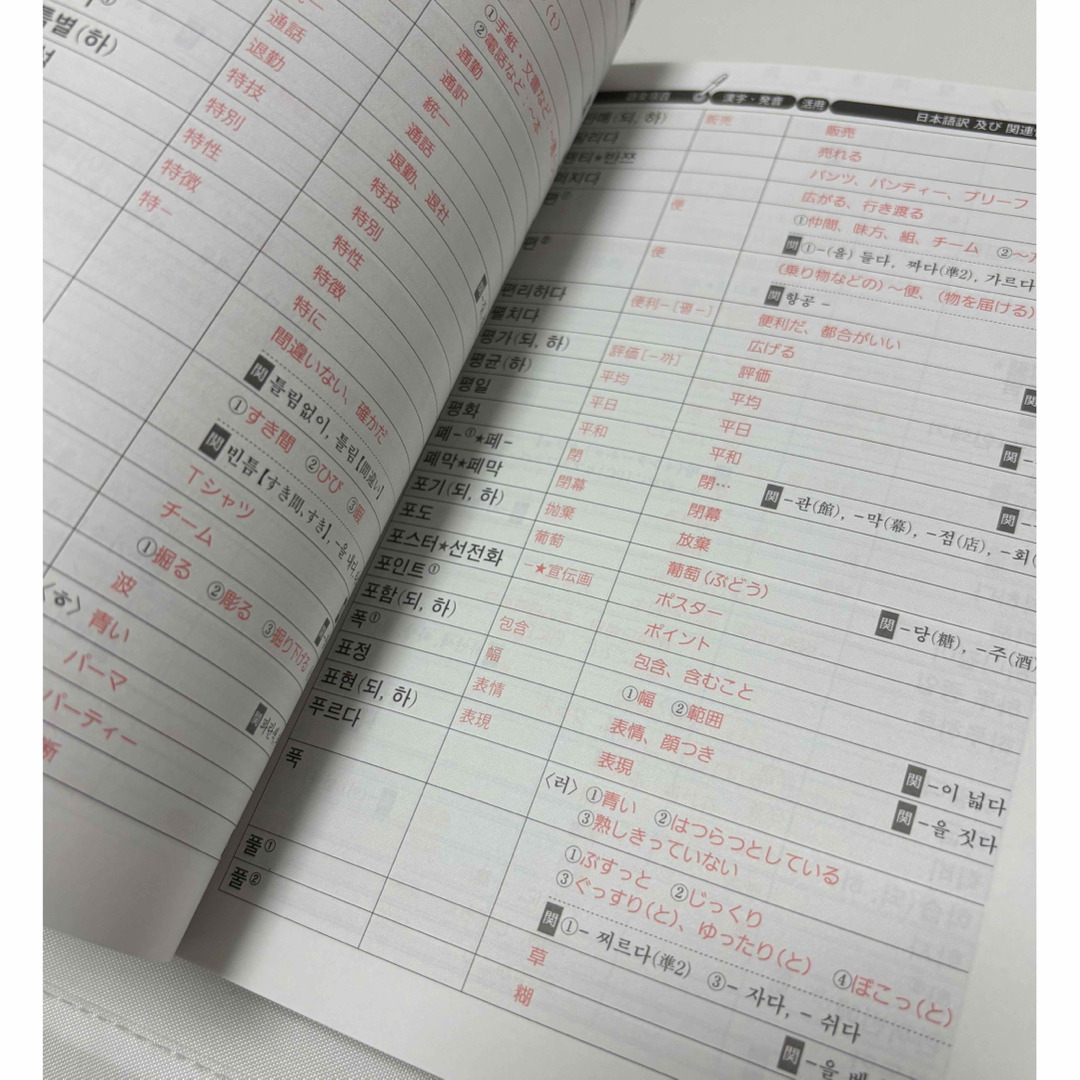 通話
退勤
特技
特別
特性
特徴
特－
特別(하)
①手紙・文書など
②電話など
通勤
通訳
統一
通話
退勤、退社
特技
特別
特性
特徴
特に
間違いない、確かだ
関 틀림없이, 틀림【間違い】
①すき間 ②ひび ③
関 빈틈【すき間,すき】,
Tシャツ
チーム
①掘る ②彫る ③掘り下げる
波
〈ㅎ〉青い
パーマ
パーティー
漢字・発音 活用 日本語訳 及び 関連
(되, 하) 販売 販売
売れる
パンツ、パンティー、ブリーフ
広がる、行き渡る
便 ①仲間、味方、組、チーム
関 ①-(을) 들다, 짜다(準2), 가르다
便 (乗り物などの)～便、(物を届ける)
関 항공 -
편리하다 便利－ 便利だ、都合がいい
펼치다 広げる
평가(되, 하) 評価[-까] 評価
평균(하) 平均 平均
평일 平日 平日
평화 平和 平和
폐-①★폐- 閉 閉…
関 -관(館), -막(幕), -점(店), -회
폐막★폐막 閉幕 閉幕
포기(되, 하) 抛棄 放棄
포도 葡萄 葡萄(ぶどう)
関 -당(糖), -주(酒)
포스터★선전화 －★宣伝画 ポスター
포인트① ポイント
포함(되, 하) 包含 包含、含むこと
폭① 幅 ①幅 ②範囲
関 -이 넓다
표정 表情 表情、顔つき
関 -을 짓다
표현(되, 하) 表現 表現
푸르다 〈러〉①青い ②はつらつとしている
③熟しきっていない
푹 ①ぶすっと ②じっくり
③ぐっすり(と)、ゆったり(と) ④ぽこっ(と)
関 ①- 찌르다(準2) ③- 자다, - 쉬다
풀① 草
関 -을
풀② 糊